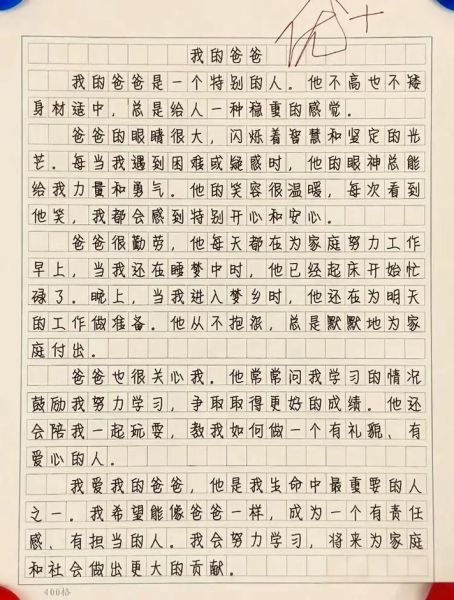 优+
我的爸爸
我的爸爸是一个特别的人。他不高也不矮
身材适中，总是给人一种稳重的感觉。
爸爸的眼睛很大，闪烁着智慧和坚定的光
芒。每当我遇到困难或疑惑时，他的眼神总能
给我力量和勇气。他的笑容很温暖，每次看到
他笑，我都会感到特别开心和安心。
爸爸很勤劳，他每天都在为家庭努力工作
早上，当我还在睡梦中时，他已经起床开始忙
碌了。晚上，当我进入梦乡时，他还在为明天
的工作做准备。他从不抱怨，总是默默地为家
庭付出。
爸爸也很关心我。他常常问我学习的情况
鼓励我努力学习，争取取得更好的成绩。他还
会陪我一起玩耍，教我如何做一个有礼貌、有
爱心的人。
我爱我的爸爸，他是我生命中最重要的人
之一。我希望能像爸爸一样，成为一个有责任
感、有担当的人。我会努力学习，将来为家庭
和社会做出更大的贡献。
400格